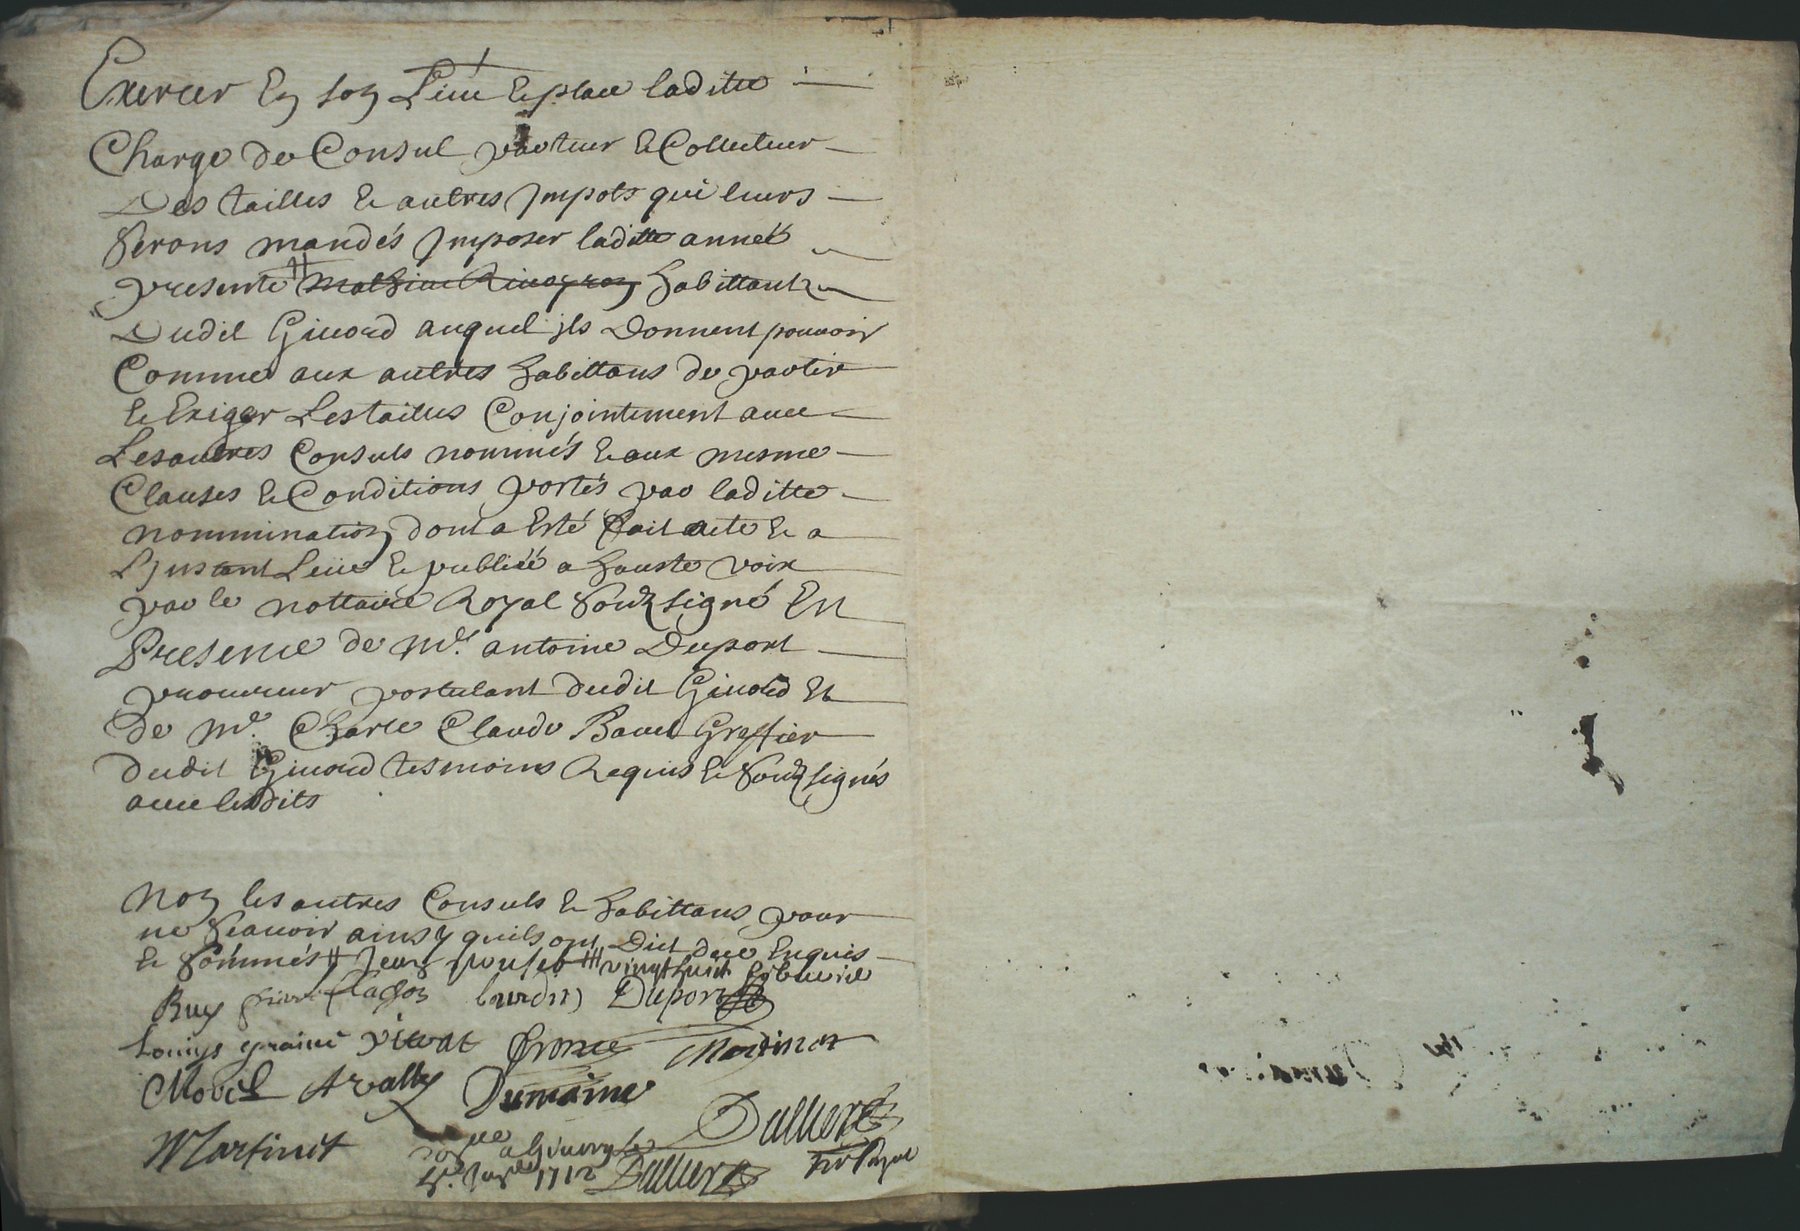 Exercer En son Lieu & place laditte
Charge de Consul parteur & Collecteur
Des tailles & autres Jmpots qui leurs
Serons mandés Jmposer laditte année
presente Mathieu habittant
Dudit Givord auquel jls Donnent pouvoir
Comme aux autres habittans de partir
& Exiger Les tailles Conjointement avec
Les autres Consuls nommés & aux mesme
Clauses & Conditions portés par laditte
nommination dont a Esté fait acte & a
Ljnstant Leüe & publiéé a hauste voix
par le nottaire Royal Soubsigné En
Presence de Mr. antoine Duport
procureur postulant dudit Givord Et
de Me. Charle Claude Greffier
dudit Givord tesmoins Requis & Soubsignés
avec lesdits
Non les autres Consuls & habittans pour
ne Scavoir ainsy quils ont Dict de ce Enquis
& Sommés Jean vingt huit
Buy Duport
Louys Pitrat Martinet
Morel A Dumaine
Martinet Dallier
a Givors le
1712 Dallier Royal